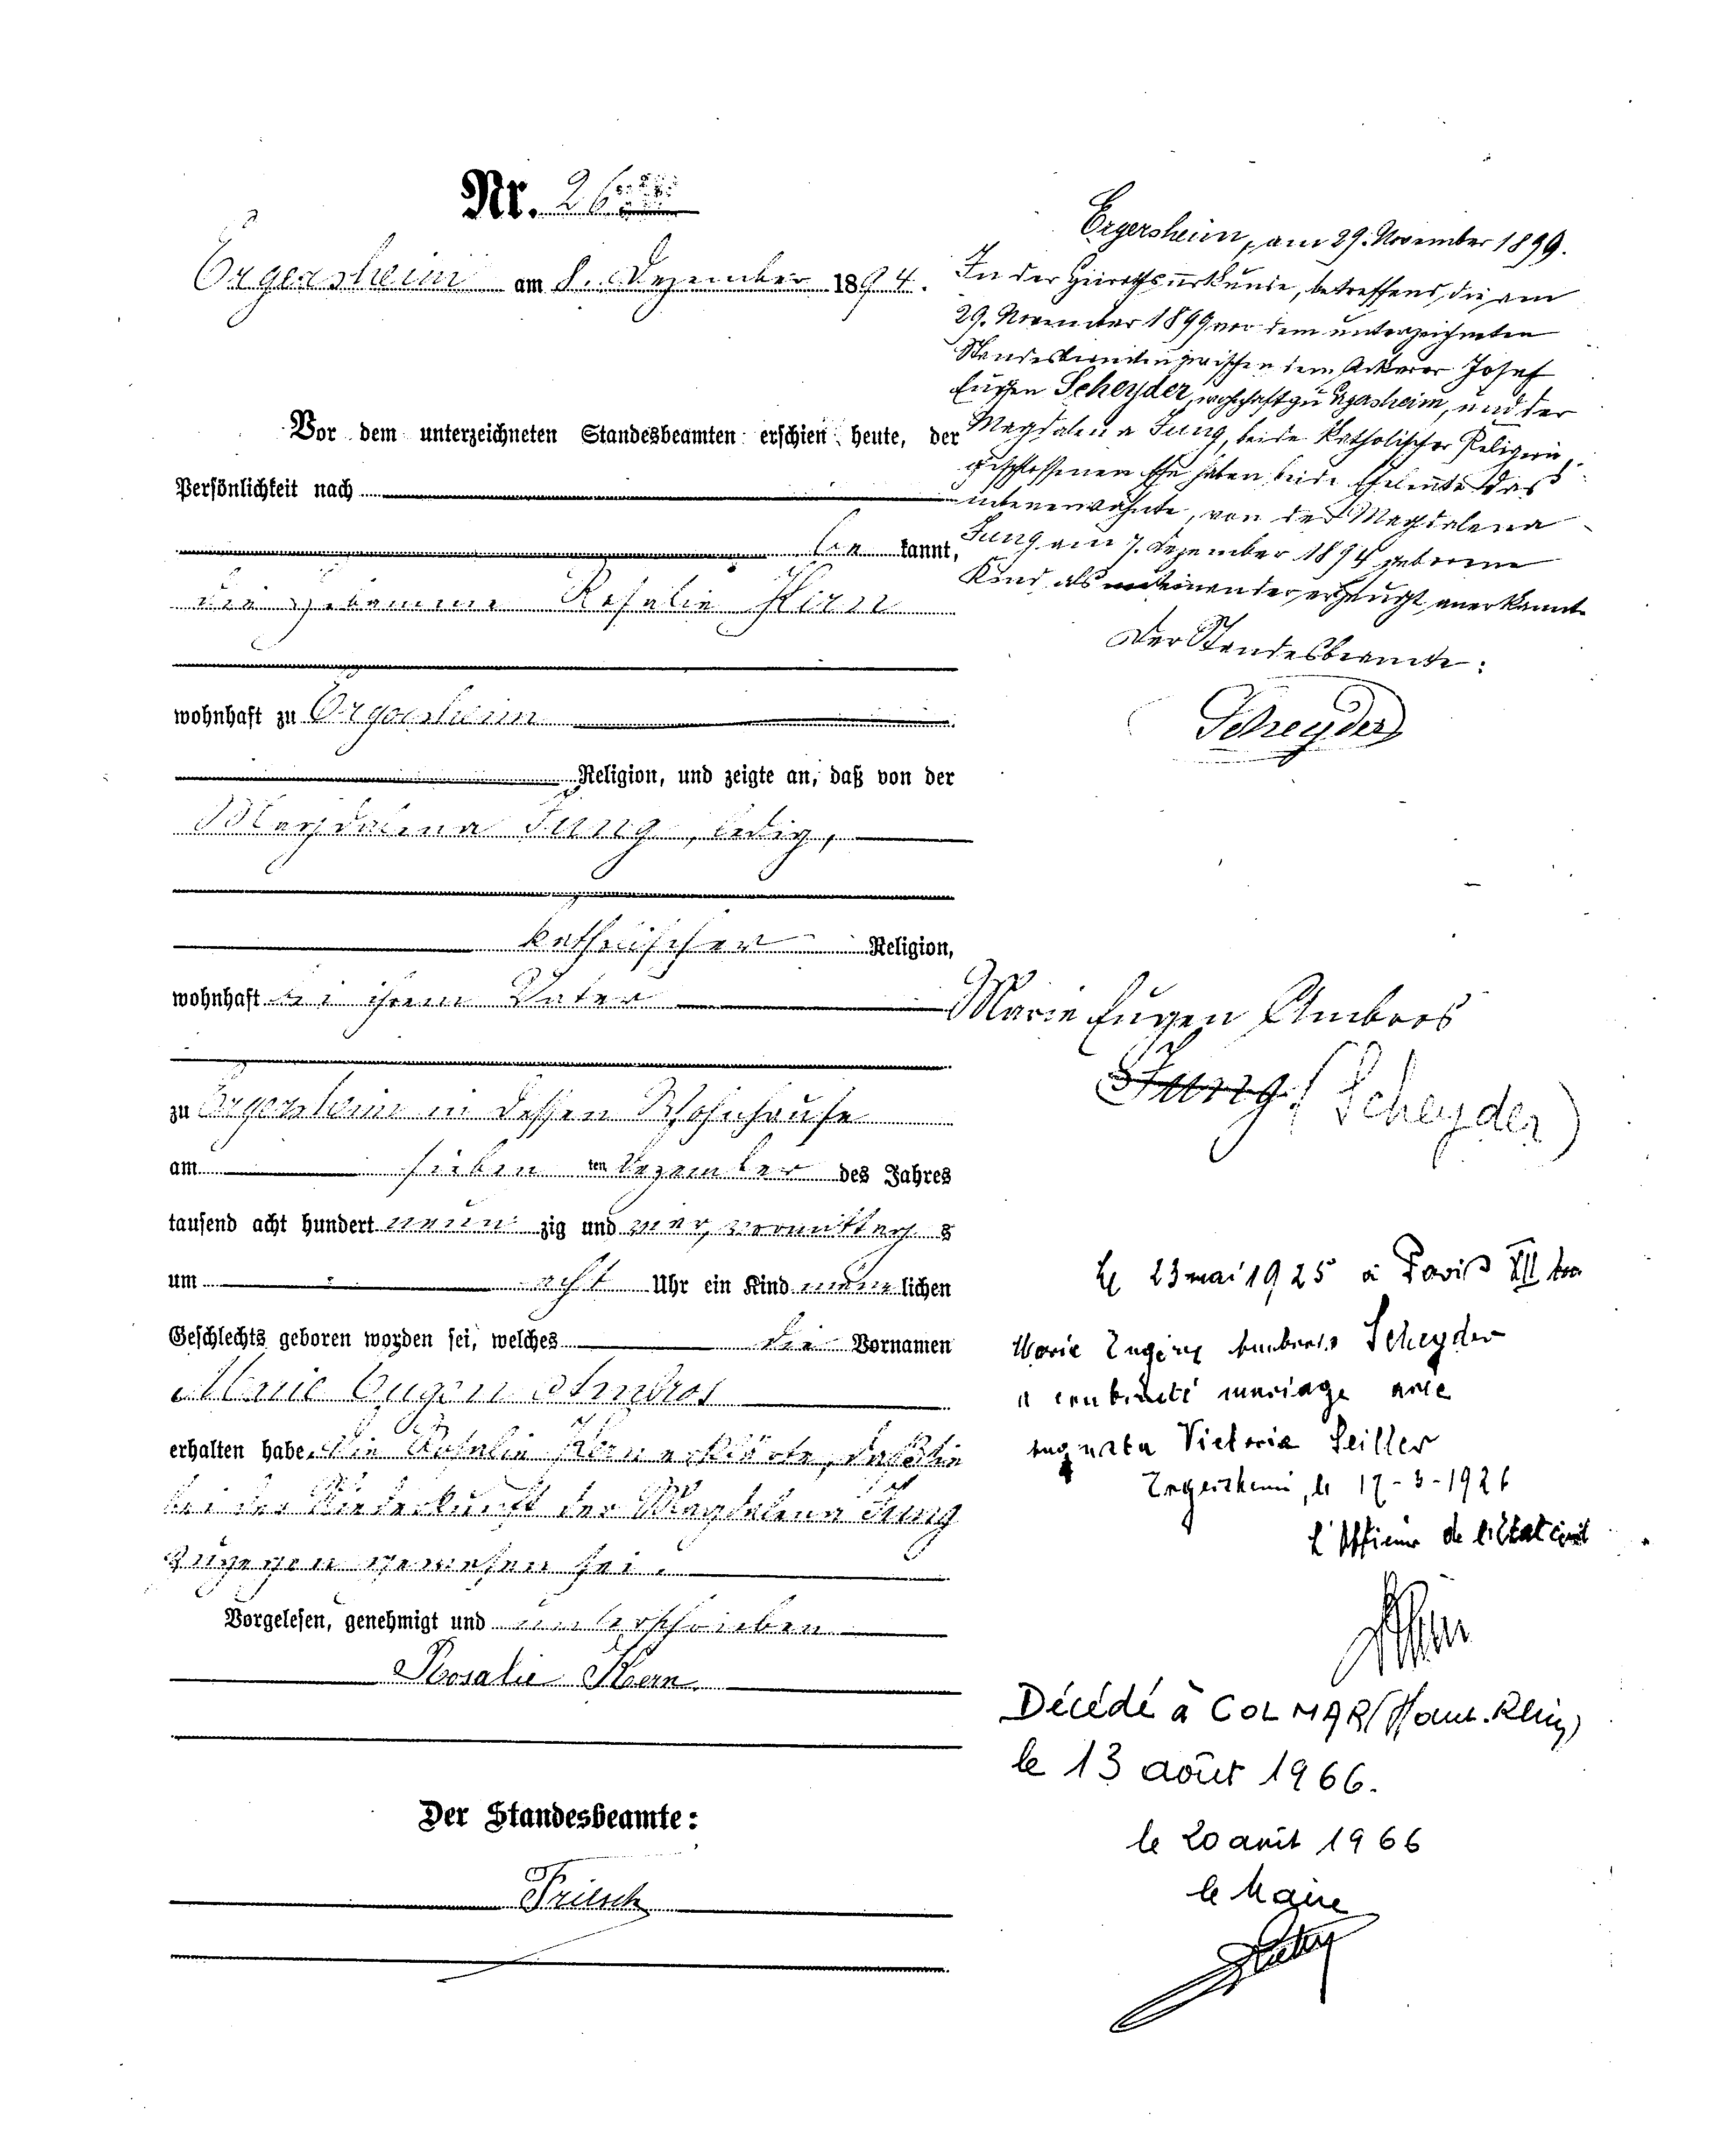 Nr. 26
Ergersheim am 8. Dezember 1894.
Vor dem unterzeichneten Standesbeamten erschien heute, der
Persönlichkeit nach
be kannt,
die Hebamme Rosalie Kern
wohnhaft zu Ergersheim
Religion, und zeigte an, daß von der
Magdalena Jung, ledig,
katholischer Religion,
wohnhaft bei ihrem Vater
zu Ergersheim in dessen Wohnhause
am sieben ten Dezember des Jahres
tausend acht hundert neun zig und vier, vormittags
um acht Uhr ein Kind männ lichen
Geschlechts geboren worden sei, welches die Vornamen
Marie Eugen Ambros
erhalten habe. Die Rosalie Kern erklärte, daß sie
bei der Niederkunft der Magdalena Jung
zugegen gewesen sei.
Vorgelesen, genehmigt und unterschrieben
Rosalie Kern
Der Standesbeamte:
Fritsch
Ergersheim, am 29. November 1899.
In der Heirathsurkunde, betreffend die am
29. November 1899 vor dem unterzeichneten
Standesbeamten zwischen dem Ackerer Josef
Eugen Scheyder, wohnhaft zu Ergersheim, und der
Magdalena Jung, beide katholischer Religion,
geschlossenen Ehe haben beide Eheleute das
nebenerwähnte, von der Magdalena
Jung am 7. Dezember 1894 geborene
Kind als miteinander erzeugt anerkannt.
Der Standesbeamte:
Scheyder
Marie Eugen Ambros
Jung (Scheyder)
Le 23 mai 1925 à Paris XII
Marie Eugène Ambrois Scheyder
a contracté mariage avec
Augusta Victoria Seiller
Ergersheim, le 17-3-1926
L'Officier de l'Etat civil
Décédé à COLMAR (Haut-Rhin)
le 13 août 1966.
le 20 août 1966
le Maire